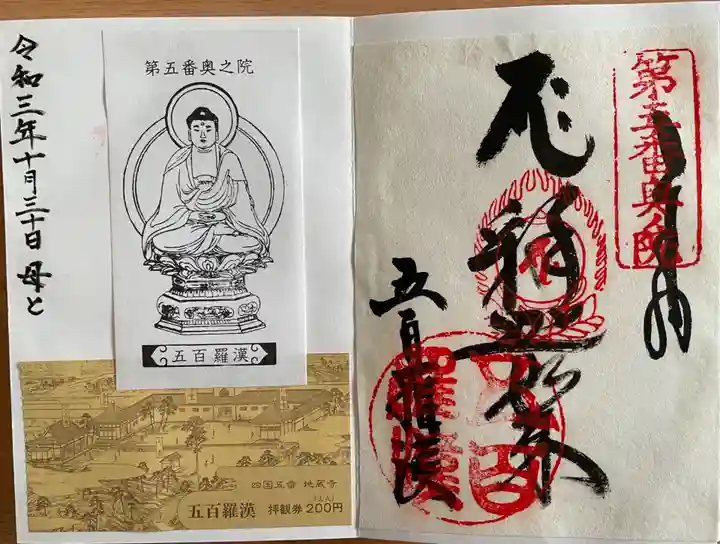 令和三年十月三十日 母と
第五番奥之院
五百羅漢
四国五番 地蔵寺
五百羅漢 拝観券200円
第五番奥之院
奉拝
釋迦如来
五百羅漢
五百羅漢